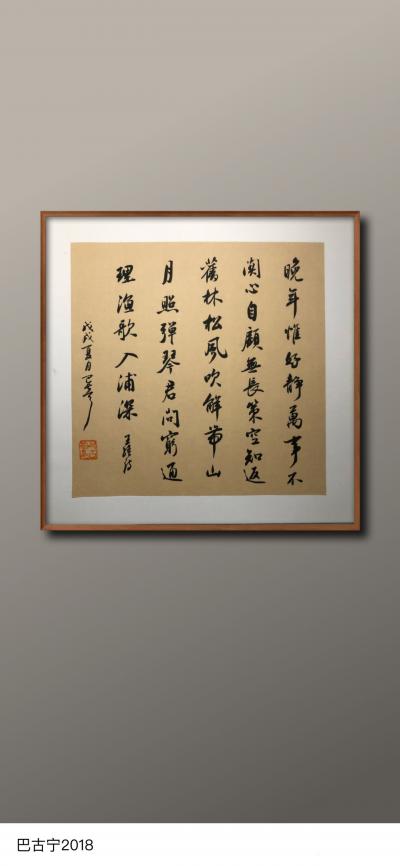 晚年惟好靜萬事不
関心自顧無長策空知返
舊林松風吹解帶山
月照彈琴君問窮通
理漁歌入浦深 王維詩
戊戌夏日
巴古宁2018